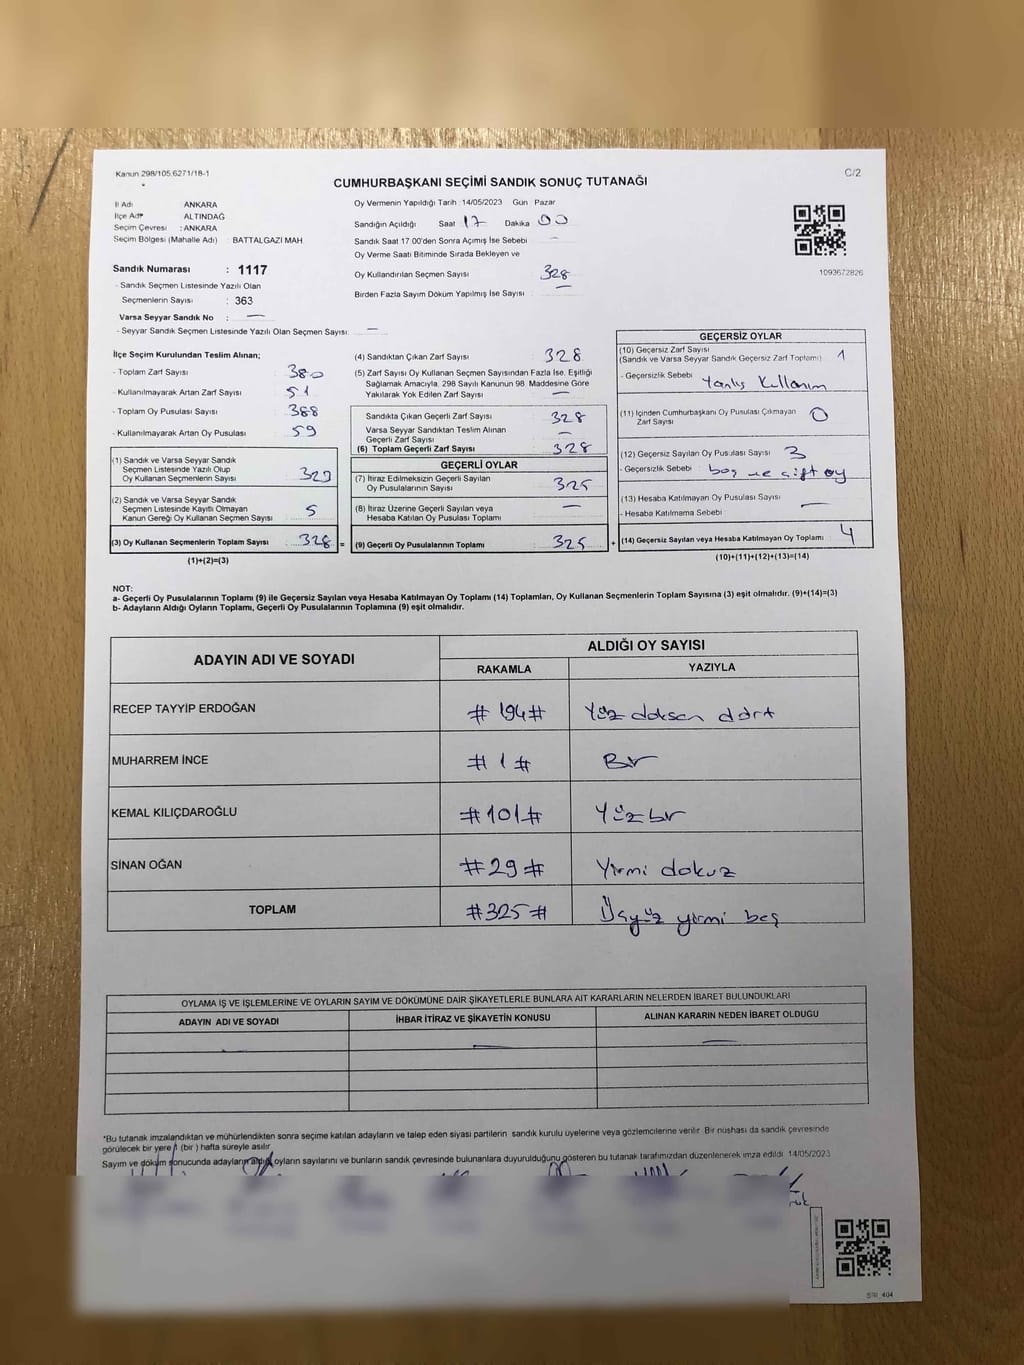 Kanun 298/105.6271/18-1
C/2
CUMHURBAŞKANI SEÇİMİ SANDIK SONUÇ TUTANAĞI
İl Adı ANKARA
İlçe Adı ALTINDAĞ
Seçim Çevresi : ANKARA
Seçim Bölgesi (Mahalle Adı) : BATTALGAZİ MAH
Sandık Numarası : 1117
- Sandık Seçmen Listesinde Yazılı Olan
Seçmenlerin Sayısı : 363
Varsa Seyyar Sandık No : —
- Seyyar Sandık Seçmen Listesinde Yazılı Olan Seçmen Sayısı: —
Oy Vermenin Yapıldığı Tarih :14/05/2023 Gün : Pazar
Sandığın Açıldığı Saat 17 Dakika 00
Sandık Saat 17.00'den Sonra Açımış İse Sebebi —
Oy Verme Saati Bitiminde Sırada Bekleyen ve
Oy Kullandırılan Seçmen Sayısı 328
Birden Fazla Sayım Döküm Yapılmış İse Sayısı —
1093672826
İlçe Seçim Kurulundan Teslim Alınan;
- Toplam Zarf Sayısı : 380
- Kullanılmayarak Artan Zarf Sayısı : 51
- Toplam Oy Pusulası Sayısı : 388
- Kullanılmayarak Artan Oy Pusulası : 59
(1) Sandık ve Varsa Seyyar Sandık
Seçmen Listesinde Yazılı Olup
Oy Kullanan Seçmenlerin Sayısı 323
(2) Sandık ve Varsa Seyyar Sandık
Seçmen Listesinde Kayıtlı Olmayan
Kanun Gereği Oy Kullanan Seçmen Sayısı 5
(3) Oy Kullanan Seçmenlerin Toplam Sayısı 328 =
(1)+(2)=(3)
(4) Sandıktan Çıkan Zarf Sayısı : 328
(5) Zarf Sayısı Oy Kullanan Seçmen Sayısından Fazla İse, Eşitliği
Sağlamak Amacıyla, 298 Sayılı Kanunun 98. Maddesine Göre
Yakılarak Yok Edilen Zarf Sayısı —
Sandıkta Çıkan Geçerli Zarf Sayısı 328
Varsa Seyyar Sandıktan Teslim Alınan
Geçerli Zarf Sayısı —
(6) Toplam Geçerli Zarf Sayısı 328
GEÇERLİ OYLAR
(7) İtiraz Edilmeksizin Geçerli Sayılan
Oy Pusulalarının Sayısı 325
(8) İtiraz Üzerine Geçerli Sayılan veya
Hesaba Katılan Oy Pusulası Toplamı —
(9) Geçerli Oy Pusulalarının Toplamı 325 +
GEÇERSİZ OYLAR
(10) Geçersiz Zarf Sayısı
(Sandık ve Varsa Seyyar Sandık Geçersiz Zarf Toplamı) : 1
- Geçersizlik Sebebi : Yanlış Kullanım
(11) İçinden Cumhurbaşkanı Oy Pusulası Çıkmayan
Zarf Sayısı : 0
(12) Geçersiz Sayılan Oy Pusulası Sayısı : 3
- Geçersizlik Sebebi : boş ve çift oy
(13) Hesaba Katılmayan Oy Pusulası Sayısı : —
- Hesaba Katılmama Sebebi
(14) Geçersiz Sayılan veya Hesaba Katılmayan Oy Toplamı 4
(10)+(11)+(12)+(13)=(14)
NOT:
a- Geçerli Oy Pusulalarının Toplamı (9) ile Geçersiz Sayılan veya Hesaba Katılmayan Oy Toplamı (14) Toplamları, Oy Kullanan Seçmenlerin Toplam Sayısına (3) eşit olmalıdır. (9)+(14)=(3)
b- Adayların Aldığı Oyların Toplamı, Geçerli Oy Pusulalarının Toplamına (9) eşit olmalıdır.
ADAYIN ADI VE SOYADI
ALDIĞI OY SAYISI
RAKAMLA YAZIYLA
RECEP TAYYİP ERDOĞAN #194# Yüz doksan dört
MUHARREM İNCE #1# Bir
KEMAL KILIÇDAROĞLU #101# Yüzbir
SİNAN OĞAN #29# Yirmi dokuz
TOPLAM #325# Üçyüz yirmi beş
OYLAMA İŞ VE İŞLEMLERİNE VE OYLARIN SAYIM VE DÖKÜMÜNE DAİR ŞİKAYETLERLE BUNLARA AİT KARARLARIN NELERDEN İBARET BULUNDUKLARI
ADAYIN ADI VE SOYADI İHBAR İTİRAZ VE ŞİKAYETİN KONUSU ALINAN KARARIN NEDEN İBARET OLDUĞU
— — —
*Bu tutanak imzalandıktan ve mühürlendikten sonra seçime katılan adayların ve talep eden siyasi partilerin sandık kurulu üyelerine veya gözlemcilerine verilir. Bir nüshası da sandık çevresinde
görülecek bir yere 1 (bir) hafta süreyle asılır.
Sayım ve döküm sonucunda adayların aldığı oyların sayılarını ve bunların sandık çevresinde bulunanlara duyurulduğunu gösteren bu tutanak tarafımızdan düzenlenerek imza edildi. 14/05/2023